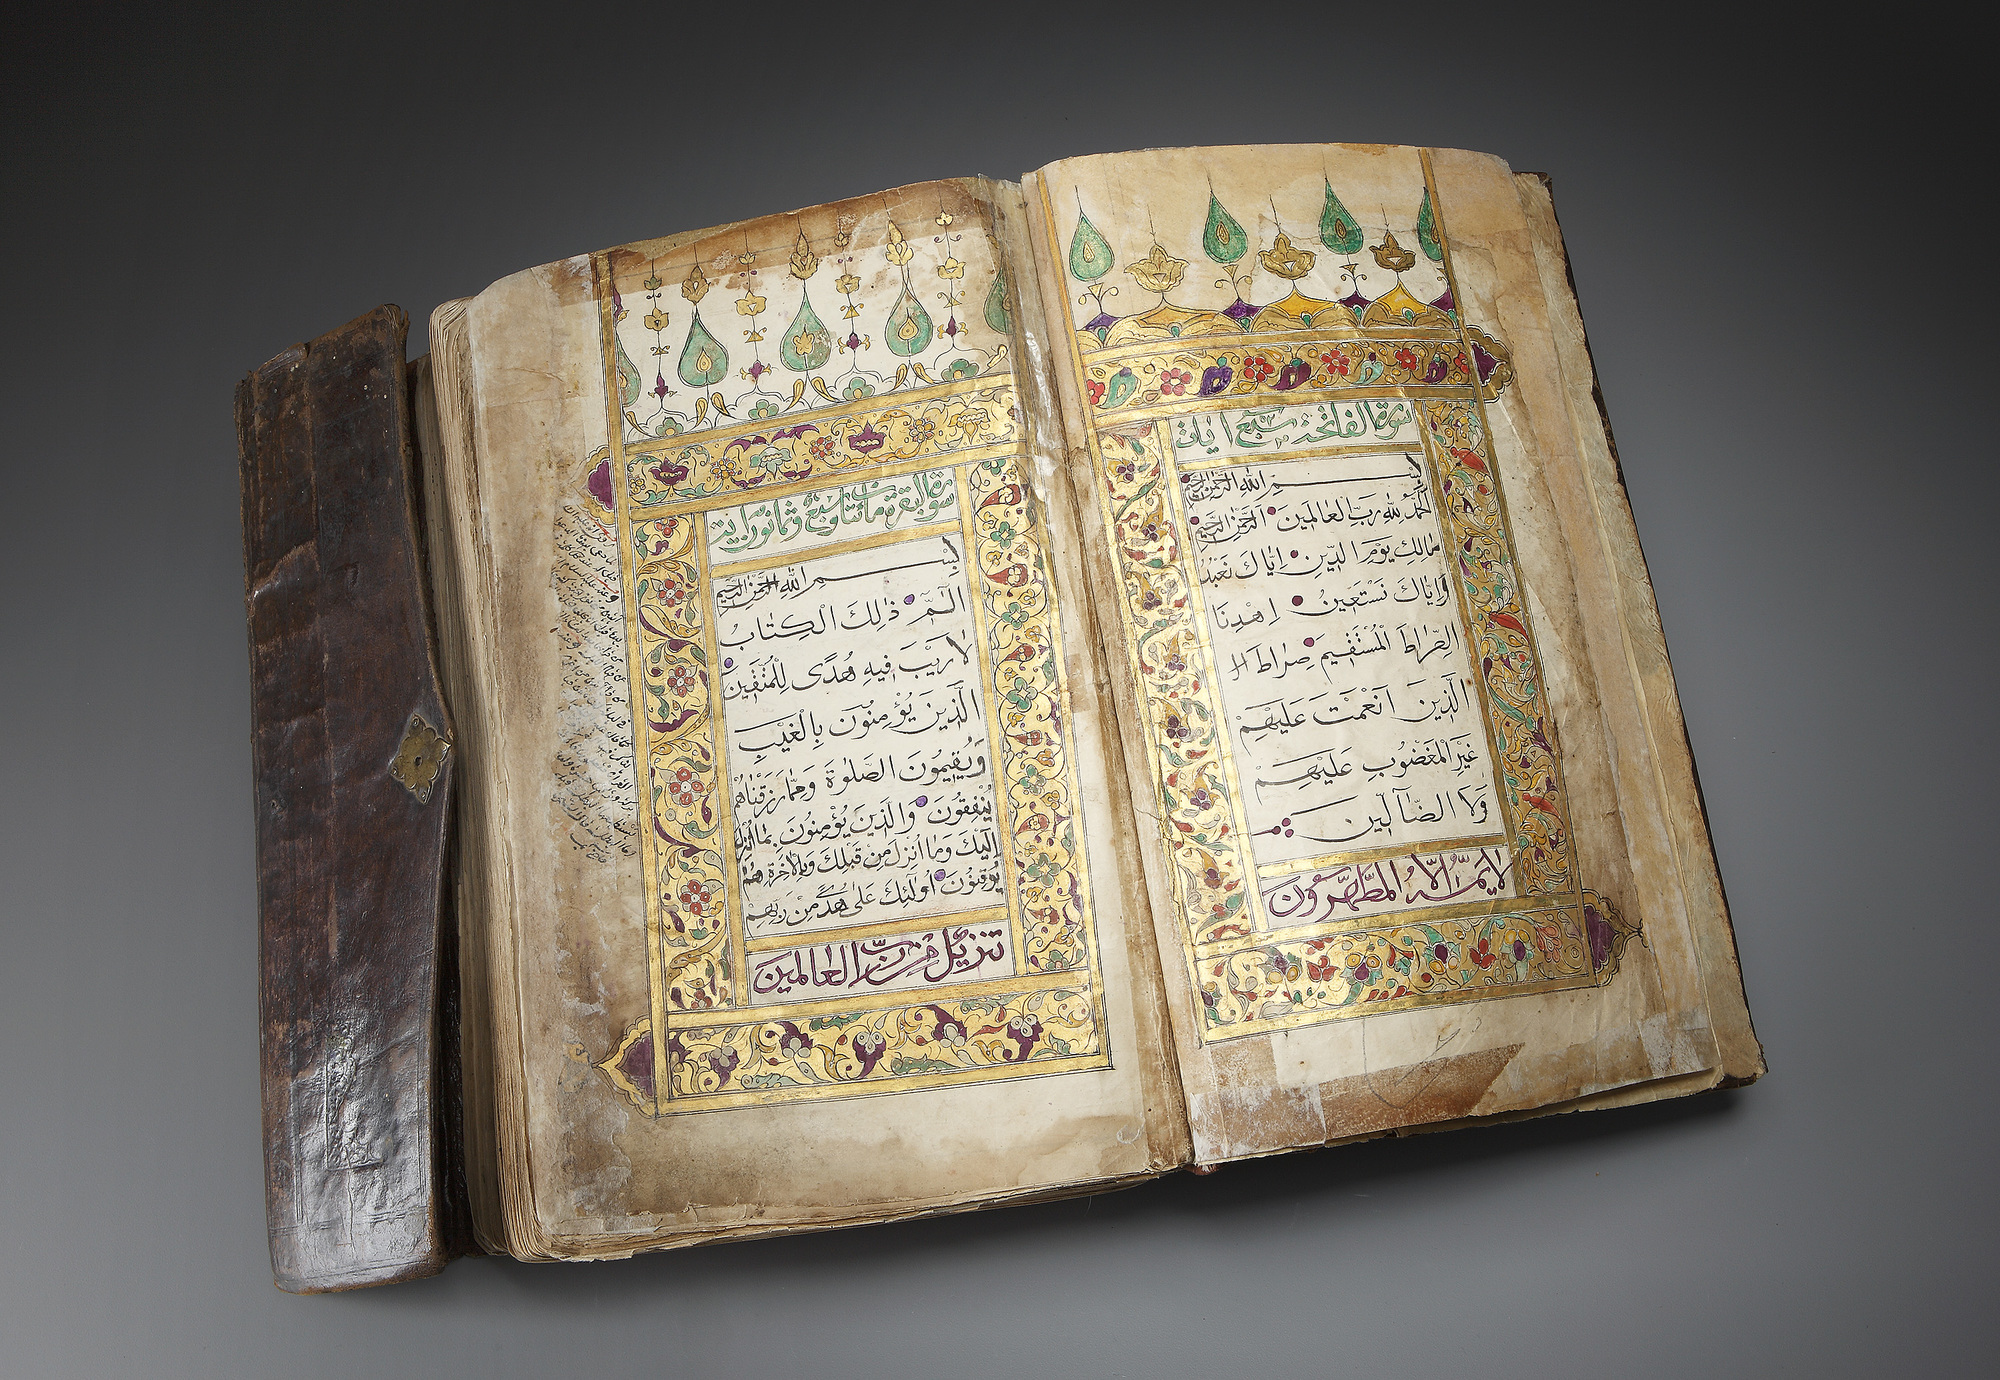 سورة الفاتحة سبع ايات
بسم الله الرحمن الرحيم
الحمد لله رب العالمين الرحمن الرحيم
مالك يوم الدين اياك نعبد
واياك نستعين اهدنا
الصراط المستقيم صراط ا
الذين انعمت عليهم
غير المغضوب عليهم
ولا الضآلين
لا يمسه الا المطهرون
سورة البقرة مائتا وسبع وثمانون اية
بسم الله الرحمن الرحيم
الٓمٓ ذٰلِكَ الْكِتَابُ
لا رَيْبَ فيهِ هُدًى لِلْمُتَّقينَ
الَّذينَ يُؤْمِنُونَ بِالْغَيْبِ
وَيُقيمُونَ الصَّلٰوةَ وَمِمَّا رَزَقْنَاهُمْ
يُنْفِقُونَ وَالَّذينَ يُؤْمِنُونَ بِمَا اُنْزِلَ
اِلَيْكَ وَمَا اُنْزِلَ مِنْ قَبْلِكَ وَبِالْاٰخِرَةِ هُمْ
يُوقِنُونَ اُولٰئِكَ عَلٰى هُدًى مِنْ رَبِّهِمْ
تنزيل من رب العالمين